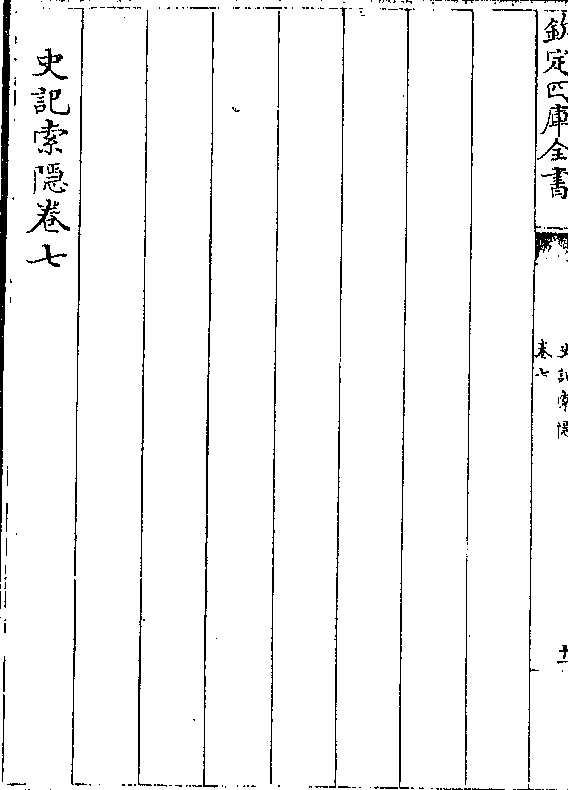 欽定四庫全書
史記索隱
卷七
史記索隱卷七